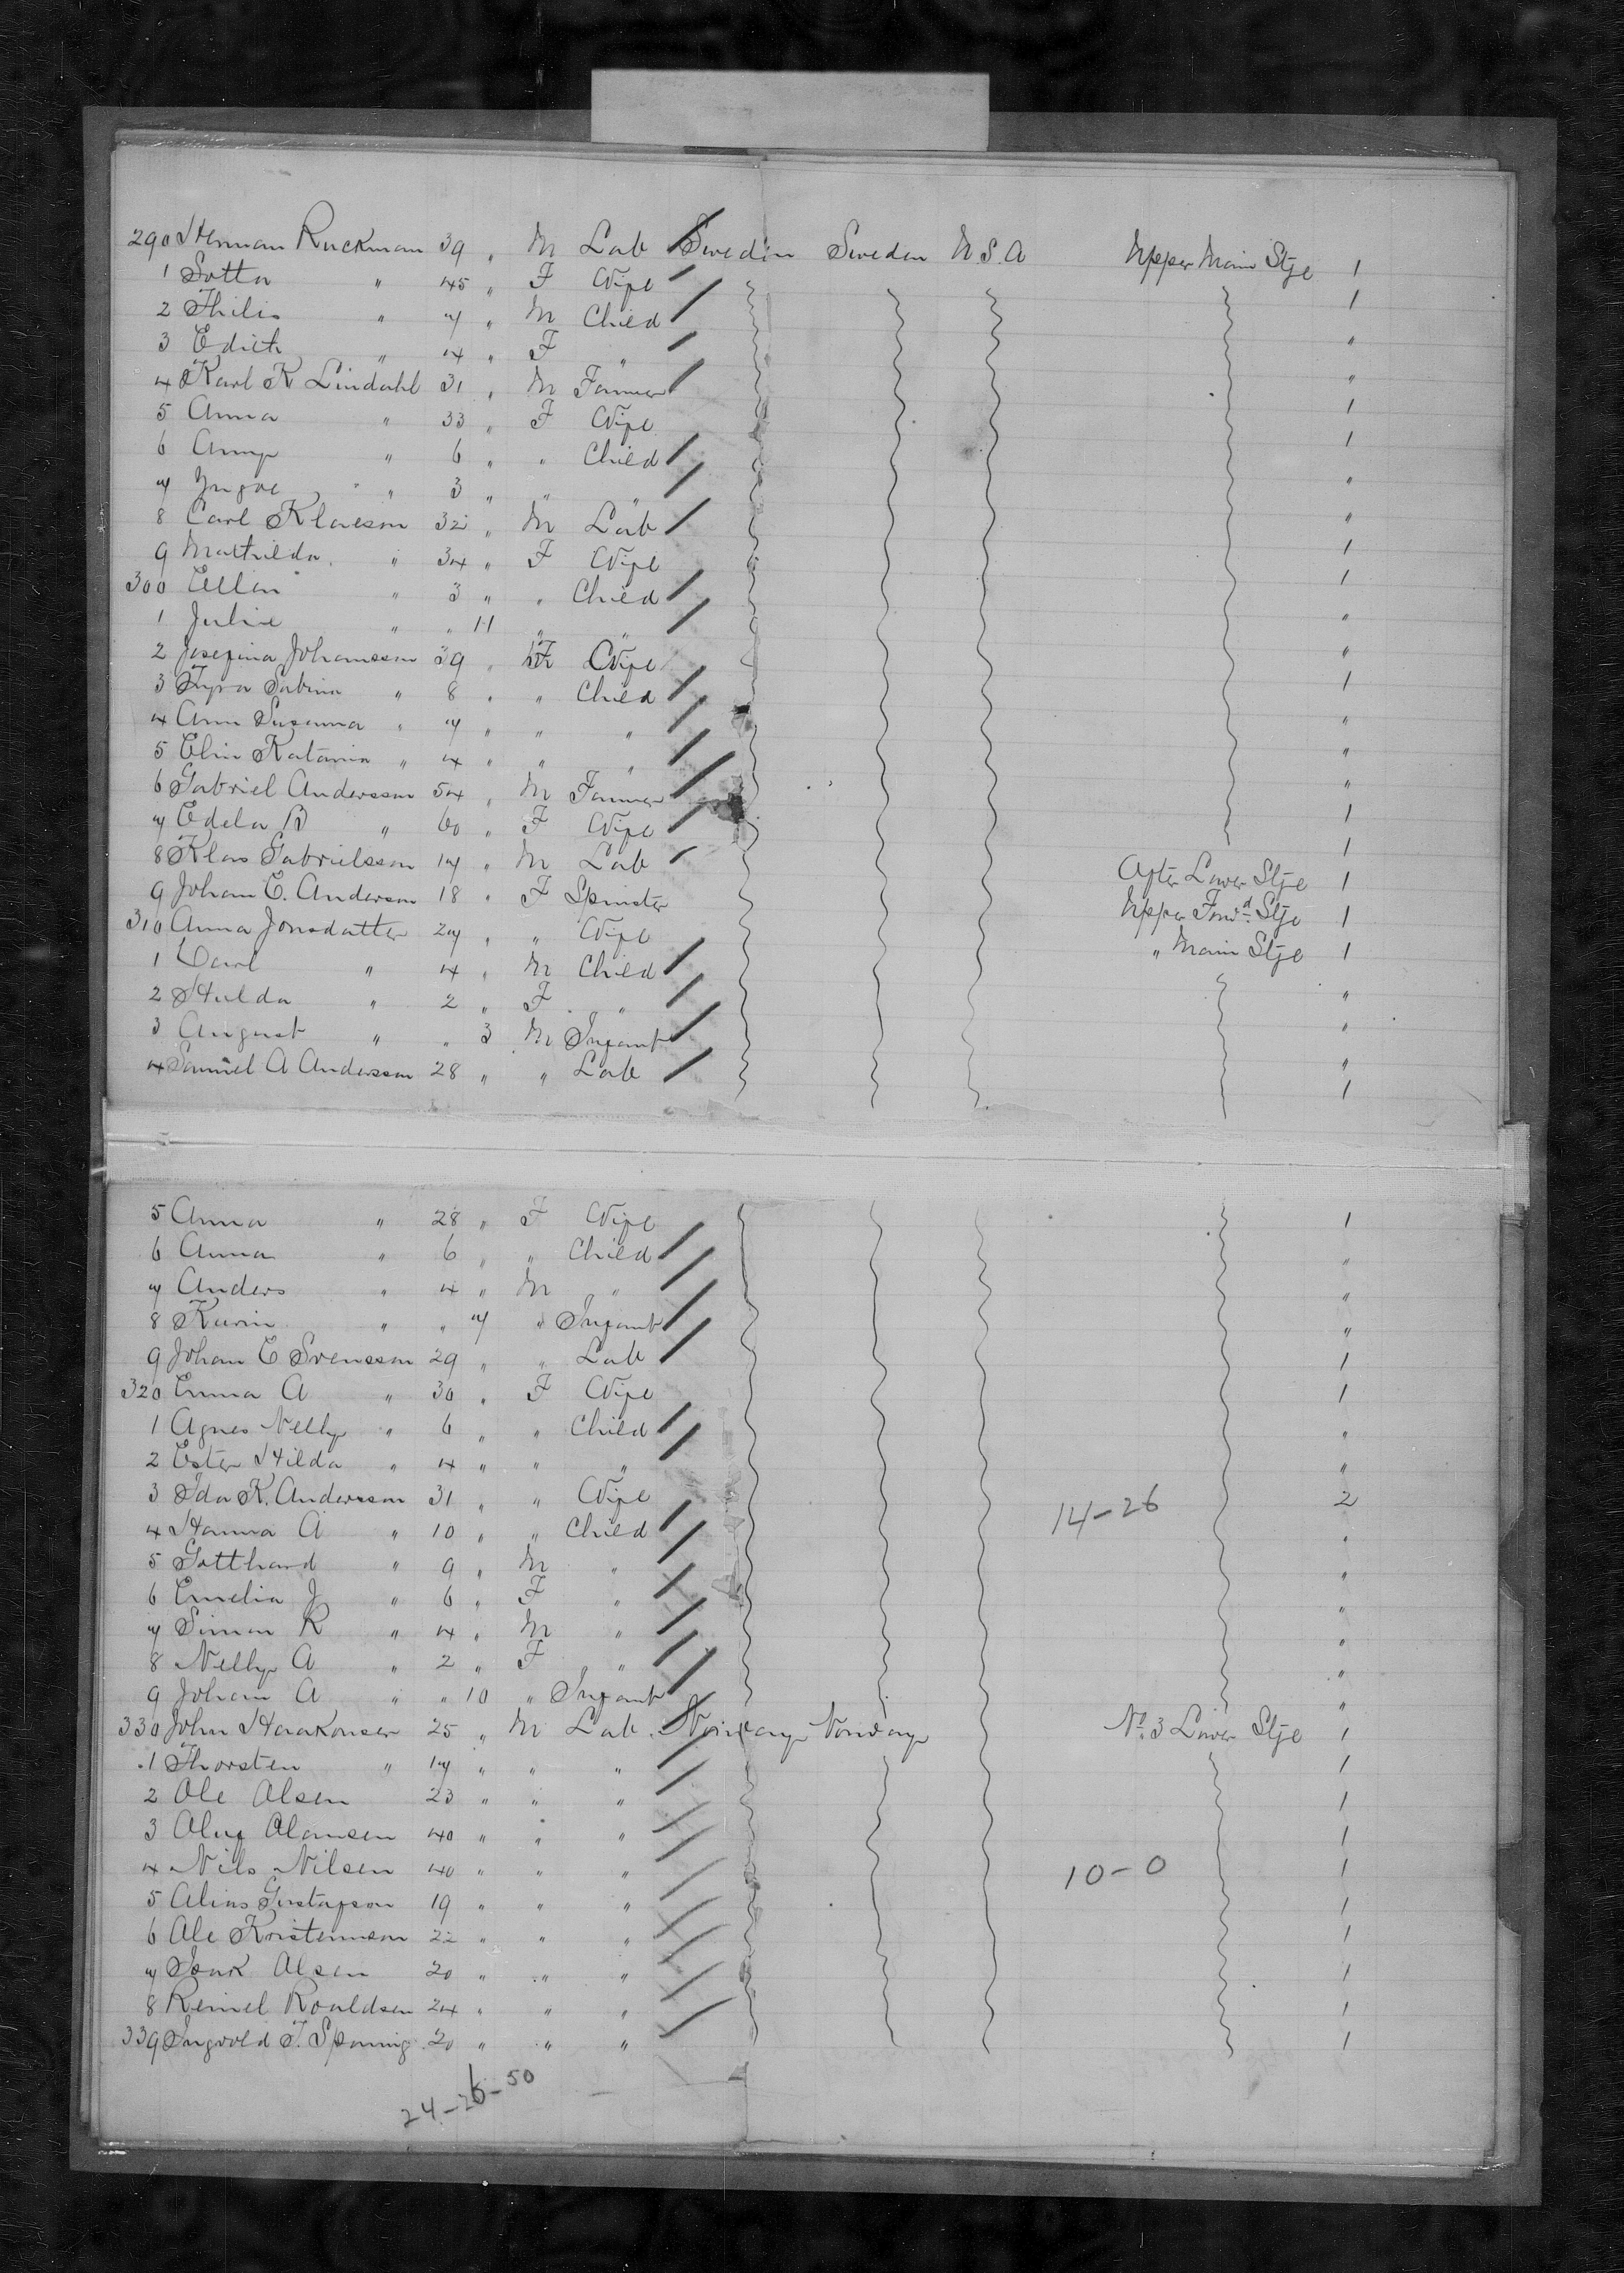 290 Herman Ruckman 39 " M Lab Sweden Sweden U.S.A Upper Main Stge 1
1 Lotta " 45 " F Wife 1
2 Thilis " 7 " M Child "
3 Edith " 4 " F " "
4 Karl K Lindahl 31 " M Farmer 1
5 Anna " 33 " F Wife 1
6 Anny " 6 " " Child "
7 Yngve " 3 " " " "
8 Carl Klaeson 32 " M Lab 1
9 Mathilda " 34 " F Wife 1
300 Ellen " 3 " " Child "
1 Julie " " 11 " " "
2 Josefina Johansson 39 " F Wife 1
3 Fyra Sabina " 8 " " Child "
4 Ann Susanna " 7 " " " "
5 Elin Katarina " 4 " " " "
6 Gabriel Andersson 54 " M Farmer 1
7 Edela B " 60 " F Wife 1
8 Klas Gabrielsson 17 " M Lab After Lower Stge 1
9 Johan E. Anderson 18 " F Spinster Upper Forwd Stge 1
310 Anna Jonsdatter 27 " " Wife " Main Stge 1
1 Carl " 4 " M Child "
2 Hulda " 2 " F " "
3 August " " 3 M Infant "
4 Samuel A Andersson 28 " " Lab 1
5 Anna " 28 " F Wife 1
6 Anna " 6 " " Child "
7 Anders " 4 " M " "
8 Karin " " 7 " Infant "
9 Johan E Svensson 29 " " Lab 1
320 Emma A " 30 " F Wife 1
1 Agnes Nelly " 6 " " Child "
2 Ester Hilda " 4 " " " "
3 Ida K. Andersson 31 " " Wife 14-26 2
4 Hanna A " 10 " " Child "
5 Gotthard " 9 " M " "
6 Emelia J " 6 " F " "
7 Simon R " 4 " M " "
8 Nelly A " 2 " F " "
9 Johan A " " 10 " Infant "
330 John Haakonsen 25 " M Lab Norway Norway No 3 Lower Stge 1
1 Thorsten " 17 " " " 1
2 Ole Olsen 23 " " " 1
3 Oluf Olansen 40 " " " 1
4 Nils Nilsen 40 " " " 10-0 1
5 Alias Gustafson 19 " " " 1
6 Ole Kristennson 22 " " " 1
7 Isak Olsen 20 " " " 1
8 Reinel Roaldsen 24 " " " 1
339 Ingvold T. Sponing 20 " " " 1
24-26-50